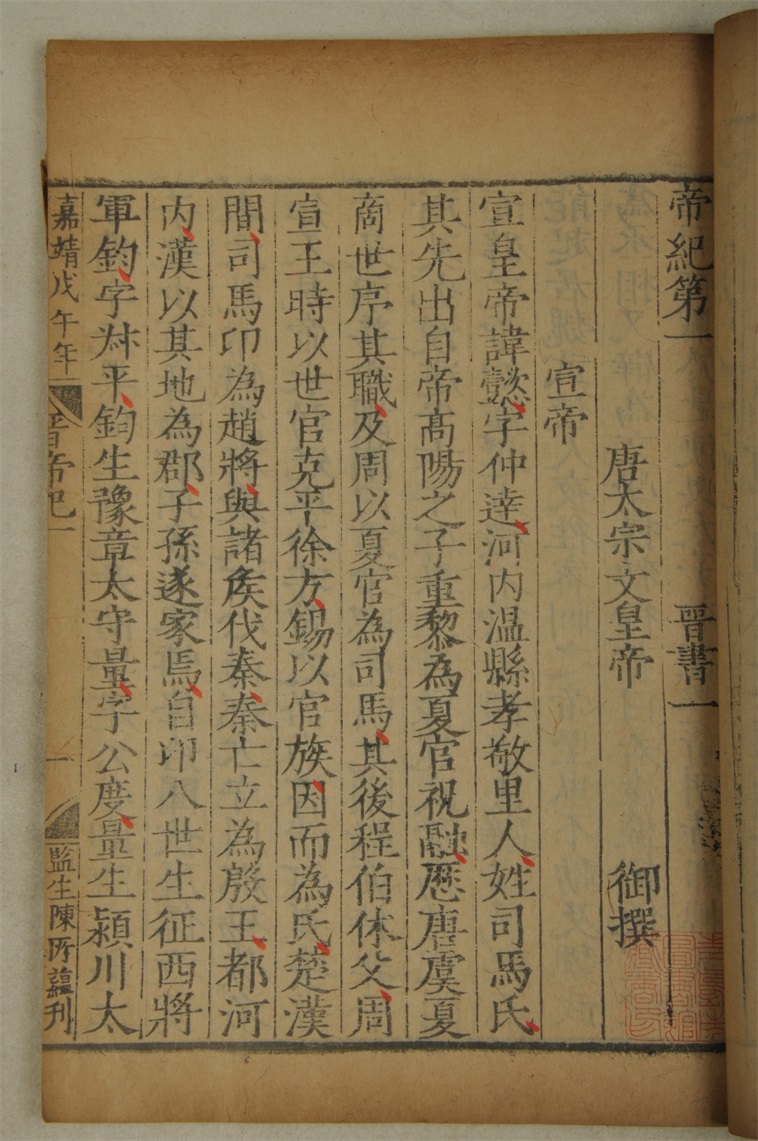 帝紀第一 晋書一
唐太宗文皇帝 御撰
宣帝
宣皇帝諱懿字仲達河内温縣孝敬里人姓司馬氏
其先出自帝髙陽之子重黎為夏官祝融歷唐虞夏
商世序其職及周以夏官為司馬其後程伯休父周
宣王時以世官克平徐方錫以官族因而為氏楚漢
間司馬卬為趙將與諸矦伐秦秦亡立為殷王都河
内漢以其地為郡子孫遂家焉自卬八世生征西將
軍鈞字叔平鈞生豫章太守量字公度量生潁川太
嘉靖戊午年 晋帝紀一 一 監生陳所蘊刊